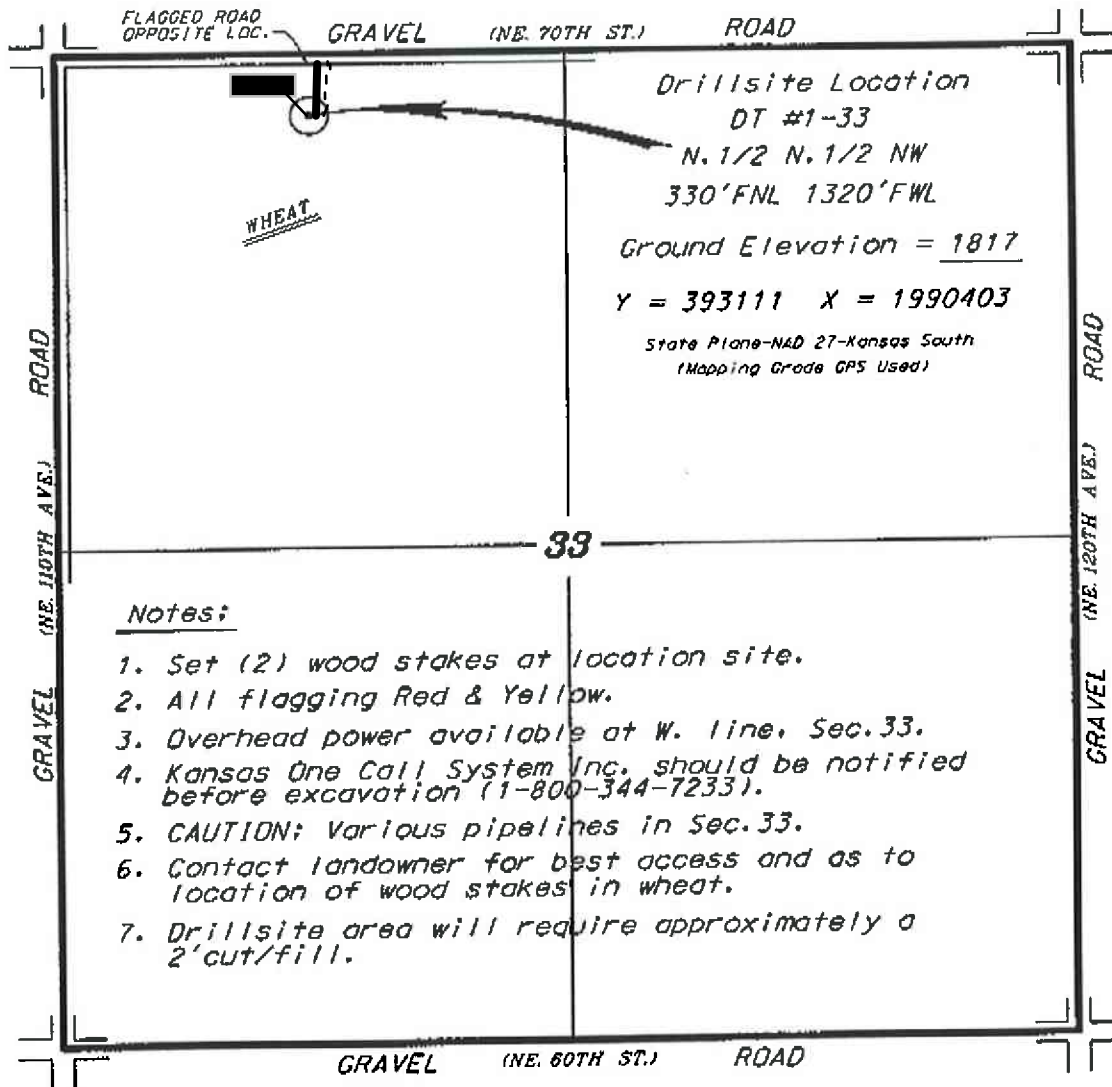 FLAGGED ROAD
OPPOSITE LOC.
GRAVEL (NE. 70TH ST.) ROAD
Drillsite Location
DT #1-33
N. 1/2 N. 1/2 NW
330'FNL 1320'FWL
WHEAT
Ground Elevation = 1817
Y = 393111 X = 1990403
State Plane-NAD 27-Kansas South
(Mapping Grade GPS Used)
GRAVEL (NE. 110TH AVE.) ROAD
GRAVEL (NE. 120TH AVE.) ROAD
33
Notes:
1. Set (2) wood stakes at location site.
2. All flagging Red & Yellow.
3. Overhead power available at W. line, Sec.33.
4. Kansas One Call System Inc. should be notified
before excavation (1-800-344-7233).
5. CAUTION: Various pipelines in Sec.33.
6. Contact landowner for best access and as to
location of wood stakes in wheat.
7. Drillsite area will require approximately a
2'cut/fill.
GRAVEL (NE. 60TH ST.) ROAD